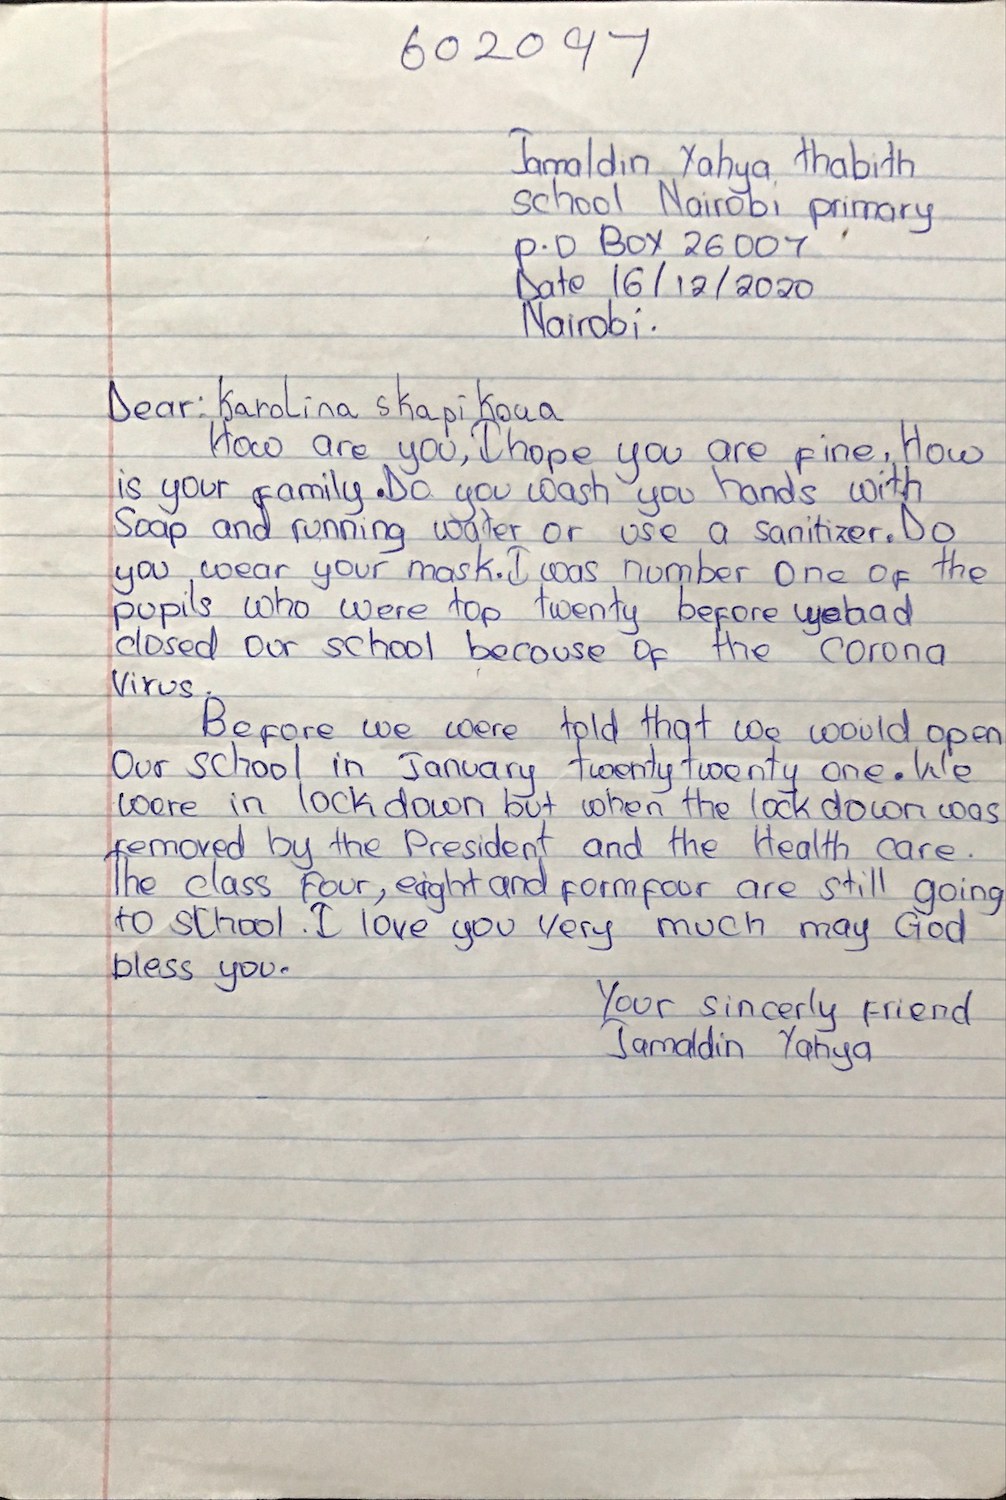 602097
Jamaldin Yahya thabith
school Nairobi primary
p.O BOX 26007
Date 16/12/2020
Nairobi.
Dear: Karolina skapikoua
How are you, I hope you are fine, How
is your family. Do you wash you hands with
Soap and running water or use a sanitizer. Do
you wear your mask. I was number One of the
pupils who were top twenty before had
closed our school becouse of the corona
Virus.
Before we were told that we would open
Our school in January twenty twenty one. We
were in lock down but when the lock down was
removed by the President and the Health care.
The class four, eight and form four are still going
to school. I love you Very much may God
bless you.
Your sincerly friend
Jamaldin Yahya